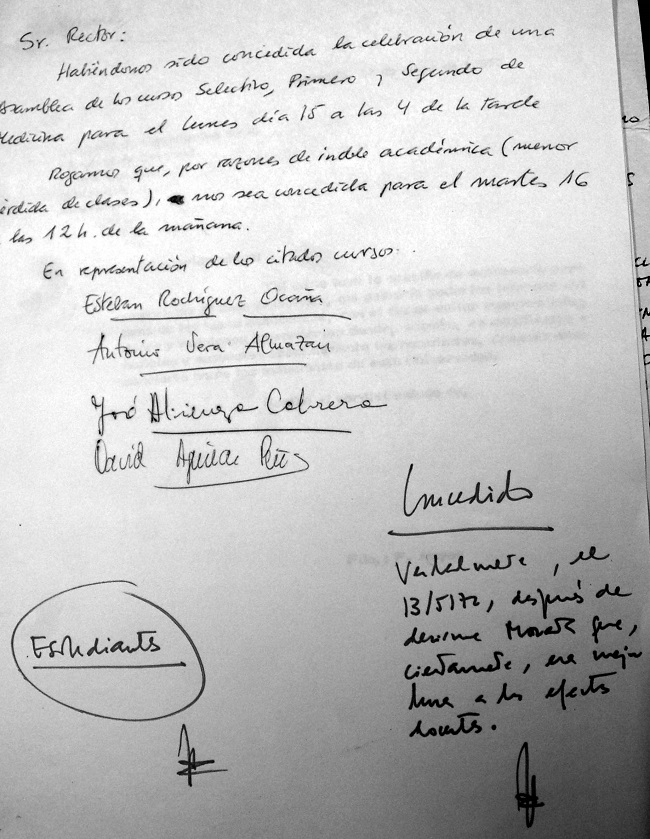 Sr. Rector:
Habiéndonos sido concedida la celebración de una
Asamblea de los cursos Selectivo, Primero y Segundo de
Medicina para el lunes día 15 a las 4 de la tarde
Rogamos que, por razones de índole académica (menor
érdida de clases), nos sea concedida para el martes 16
las 12 h. de la mañana.
En representación de los citados cursos.
Esteban Rodríguez Ocaña
Antonio Vera Almazán
José Atienza Cabrera
David Aguilar
Concedido
Verbalmente, el
13/5/72, después de
decirme que,
ciertamente, era mejor
hora a los efectos
docentes.
Estudiantes